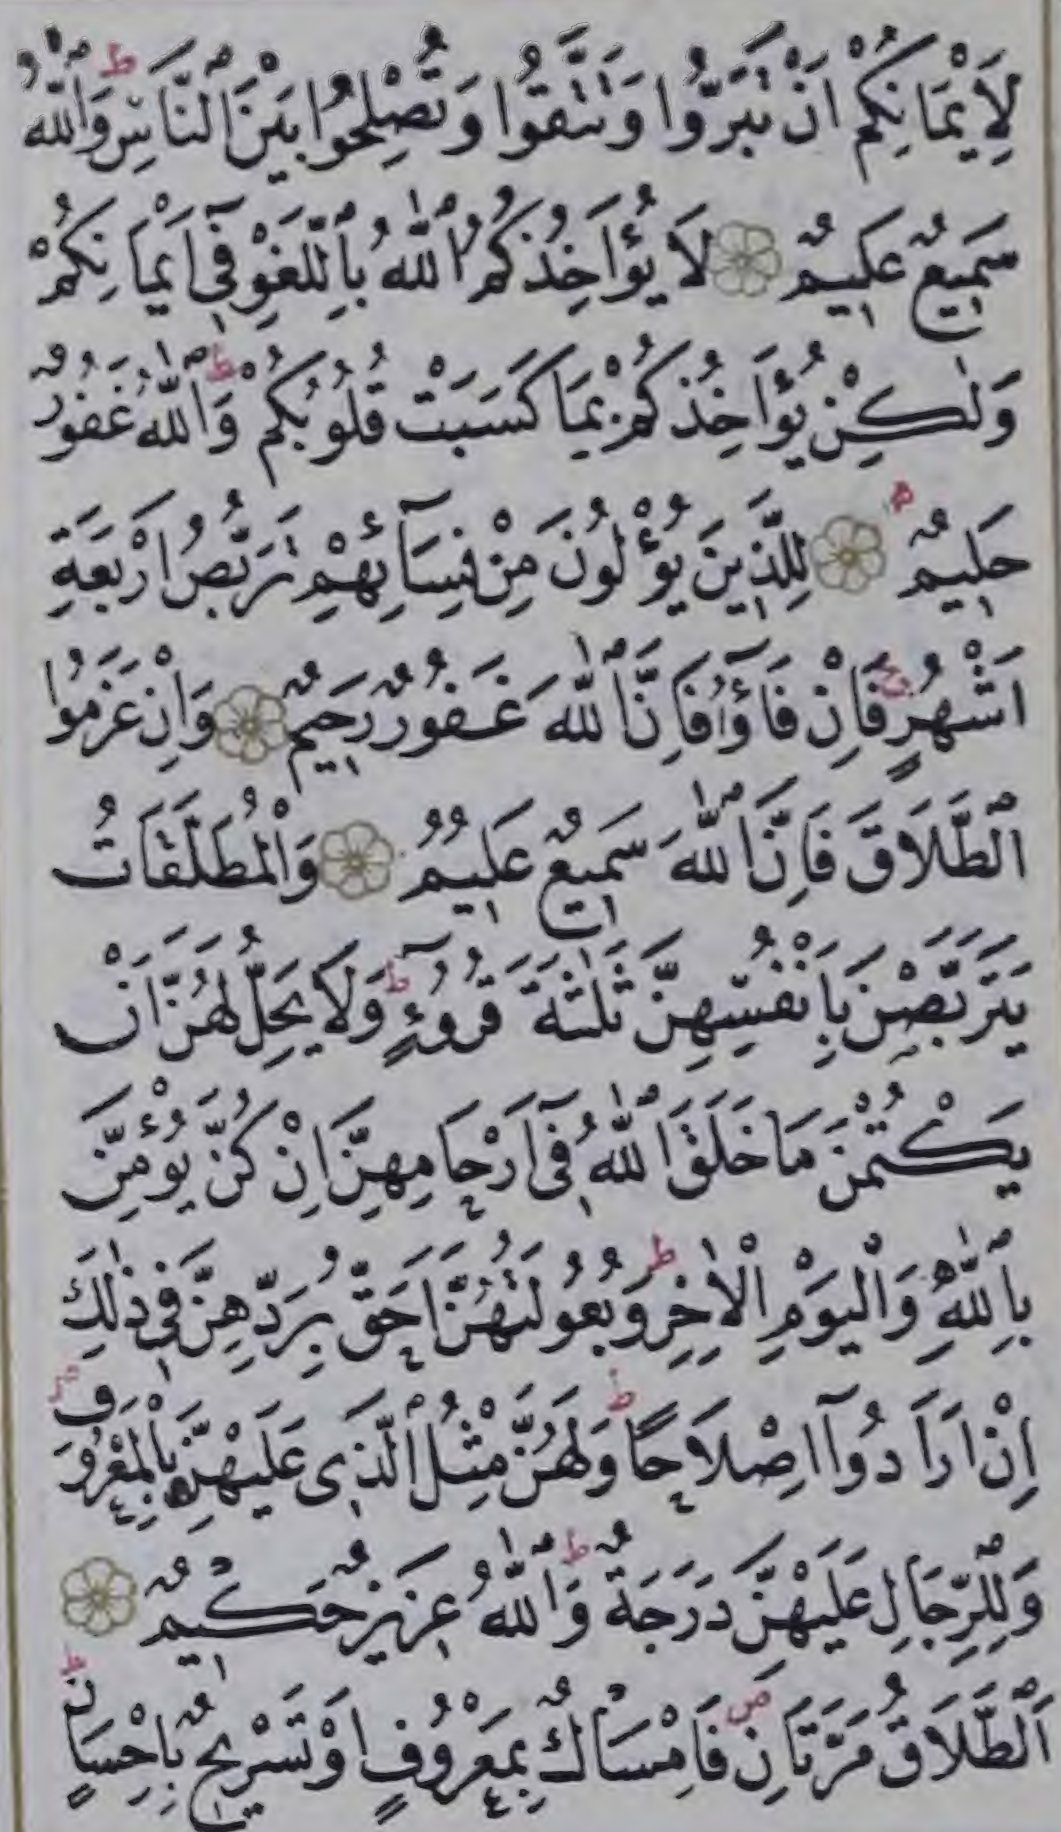 لِاَيْمَانِكُمْ اَنْ تَبَرُّوا وَتَتَّقُوا وَتُصْلِحُوا بَيْنَ ٱلنَّاسِ ط وَٱللّٰهُ
سَمِيعٌ عَلِيمٌ لَا يُؤَاخِذُكُمُ ٱللّٰهُ بِٱللَّغْوِ فِٓى اَيْمَانِكُمْ
وَلٰكِنْ يُؤَاخِذُكُمْ بِمَا كَسَبَتْ قُلُوبُكُمْ ط وَٱللّٰهُ غَفُورٌ
حَلِيمٌ لِلَّذِينَ يُؤْلُونَ مِنْ نِسَٓائِهِمْ تَرَبُّصُ اَرْبَعَةِ
اَشْهُرٍ ج فَاِنْ فَٓاؤُ فَاِنَّ ٱللّٰهَ غَفُورٌ رَحِيمٌ وَاِنْ عَزَمُوا
ٱلطَّلَاقَ فَاِنَّ ٱللّٰهَ سَمِيعٌ عَلِيمٌ وَالْمُطَلَّقَاتُ
يَتَرَبَّصْنَ بِاَنْفُسِهِنَّ ثَلٰثَةَ قُرُٓوءٍ ط وَلَا يَحِلُّ لَهُنَّ اَنْ
يَكْتُمْنَ مَا خَلَقَ ٱللّٰهُ فِٓى اَرْحَامِهِنَّ اِنْ كُنَّ يُؤْمِنَّ
بِٱللّٰهِ وَالْيَوْمِ الْاٰخِرِ ط وَبُعُولَتُهُنَّ اَحَقُّ بِرَدِّهِنَّ فِى ذٰلِكَ
اِنْ اَرَادُٓوا اِصْلَاحًا ط وَلَهُنَّ مِثْلُ ٱلَّذِى عَلَيْهِنَّ بِالْمَعْرُوفِ
وَلِلرِّجَالِ عَلَيْهِنَّ دَرَجَةٌ ط وَٱللّٰهُ عَزِيزٌ حَكِيمٌ
ٱلطَّلَاقُ مَرَّتَانِ ص فَاِمْسَاكٌ بِمَعْرُوفٍ اَوْ تَسْرِيحٌ بِاِحْسَانٍ ط